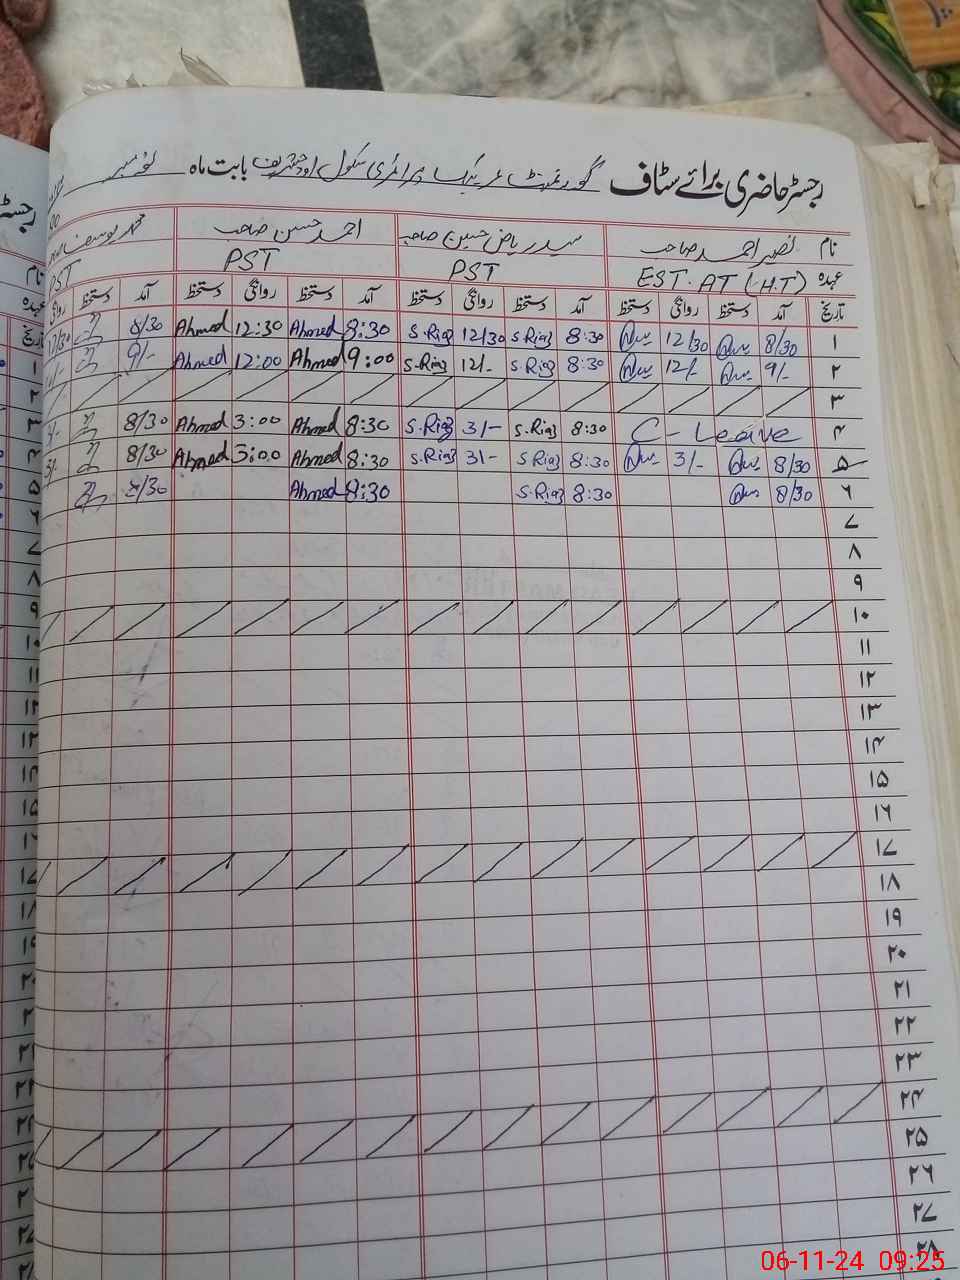 رجسٹر حاضری برائے سٹاف گورنمنٹ پرائمری سکول اوچشریف بابت ماہ نومبر
نام نصیر احمد صاحب سید ریاض حسین صاحب احمد حسن صاحب محمد یوسف
عہدہ EST. AT (H.T) PST PST PST
تاریخ آمد دستخط روانگی دستخط آمد دستخط روانگی دستخط آمد دستخط روانگی دستخط آمد دستخط روانگی
۱ 8/30 12/30 8:30 S.Riaz 12/30 S.Riaz 8:30 Ahmed 12:30 Ahmed 8/30 12/30
۲ 9/- 12/- 8:30 S.Riaz 12/- S.Riaz 9:00 Ahmed 12:00 Ahmed 9/-
۳
۴ C- Leave 8:30 S.Riaz 3/- S.Riaz 8:30 Ahmed 3:00 Ahmed 8/30
۵ 8/30 3/- 8:30 S.Riaz 3/- S.Riaz 8:30 Ahmed 3:00 Ahmed 8/30
۶ 8/30 8:30 S.Riaz 8:30 Ahmed 8/30
۷
۸
۹
۱۰
۱۱
۱۲
۱۳
۱۴
۱۵
۱۶
۱۷
۱۸
۱۹
۲۰
۲۱
۲۲
۲۳
۲۴
۲۵
۲۶
۲۷
۲۸
06-11-24 09:25